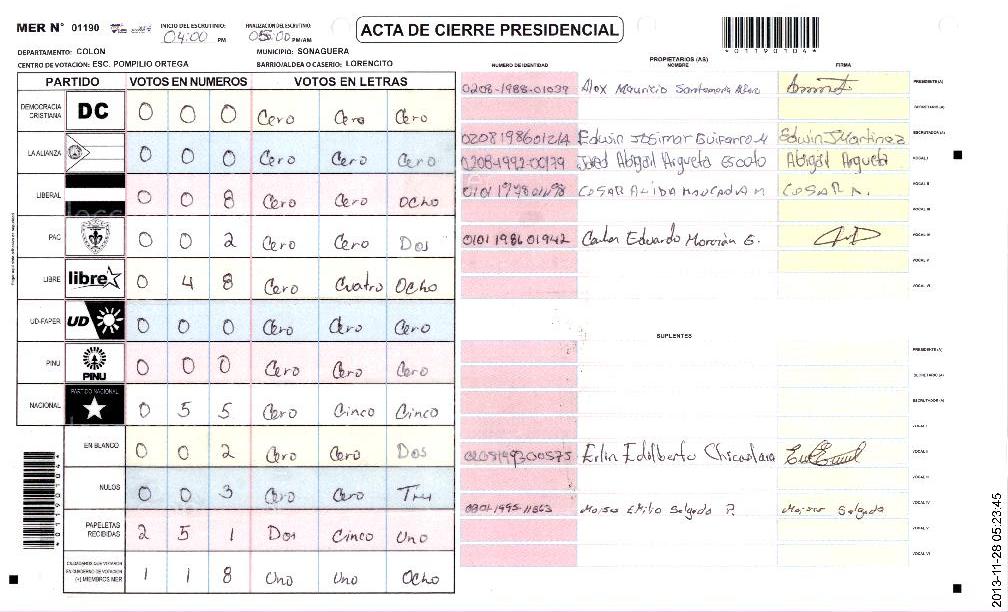 MER N° 01190
INICIO DEL ESCRUTINIO: 04:00 PM
FINALIZACION DEL ESCRUTINIO: 05:00 PM/AM
ACTA DE CIERRE PRESIDENCIAL
*01190104*
DEPARTAMENTO: COLON MUNICIPIO: SONAGUERA
CENTRO DE VOTACION: ESC. POMPILIO ORTEGA BARRIO/ALDEA O CASERIO: LORENCITO
PARTIDO VOTOS EN NUMEROS VOTOS EN LETRAS
DEMOCRACIA CRISTIANA DC 0 0 0 Cero Cero Cero
LA ALIANZA 0 0 0 Cero Cero Cero
LIBERAL 0 0 8 Cero Cero Ocho
PAC 0 0 2 Cero Cero Dos
LIBRE libre 0 4 8 Cero Cuatro Ocho
UD-FAPER UD 0 0 0 Cero Cero Cero
PINU PINU 0 0 0 Cero Cero Cero
NACIONAL PARTIDO NACIONAL 0 5 5 Cero Cinco Cinco
EN BLANCO 0 0 2 Cero Cero Dos
NULOS 0 0 3 Cero Cero Tres
PAPELETAS RECIBIDAS 2 5 1 Dos Cinco Uno
CIUDADANOS QUE VOTARON EN CUADERNO DE VOTACION (+) MIEMBROS MER 1 1 8 Uno Uno Ocho
*01190104*
PROPIETARIOS (AS)
NUMERO DE IDENTIDAD NOMBRE FIRMA
0208-1988-01039 Alex Mauricio Santamaria PRESIDENTE(A)
SECRETARIO (A)
Edwin Josimar Edwin J Martinez ESCRUTADOR (A)
0208-1992-00179 Abigail Argueta Abigail Argueta VOCAL I
VOCAL II
VOCAL III
0101 1986 01942 Carlos Eduardo VOCAL IV
VOCAL V
VOCAL VI
SUPLENTES
PRESIDENTE (A)
SECRETARIO (A)
ESCRUTADOR (A)
VOCAL I
Erlin Edilberto VOCAL II
VOCAL III
Moises Emilio Salgado P. Moises Salgado VOCAL IV
VOCAL V
VOCAL VI
2013-11-28 05:23:45